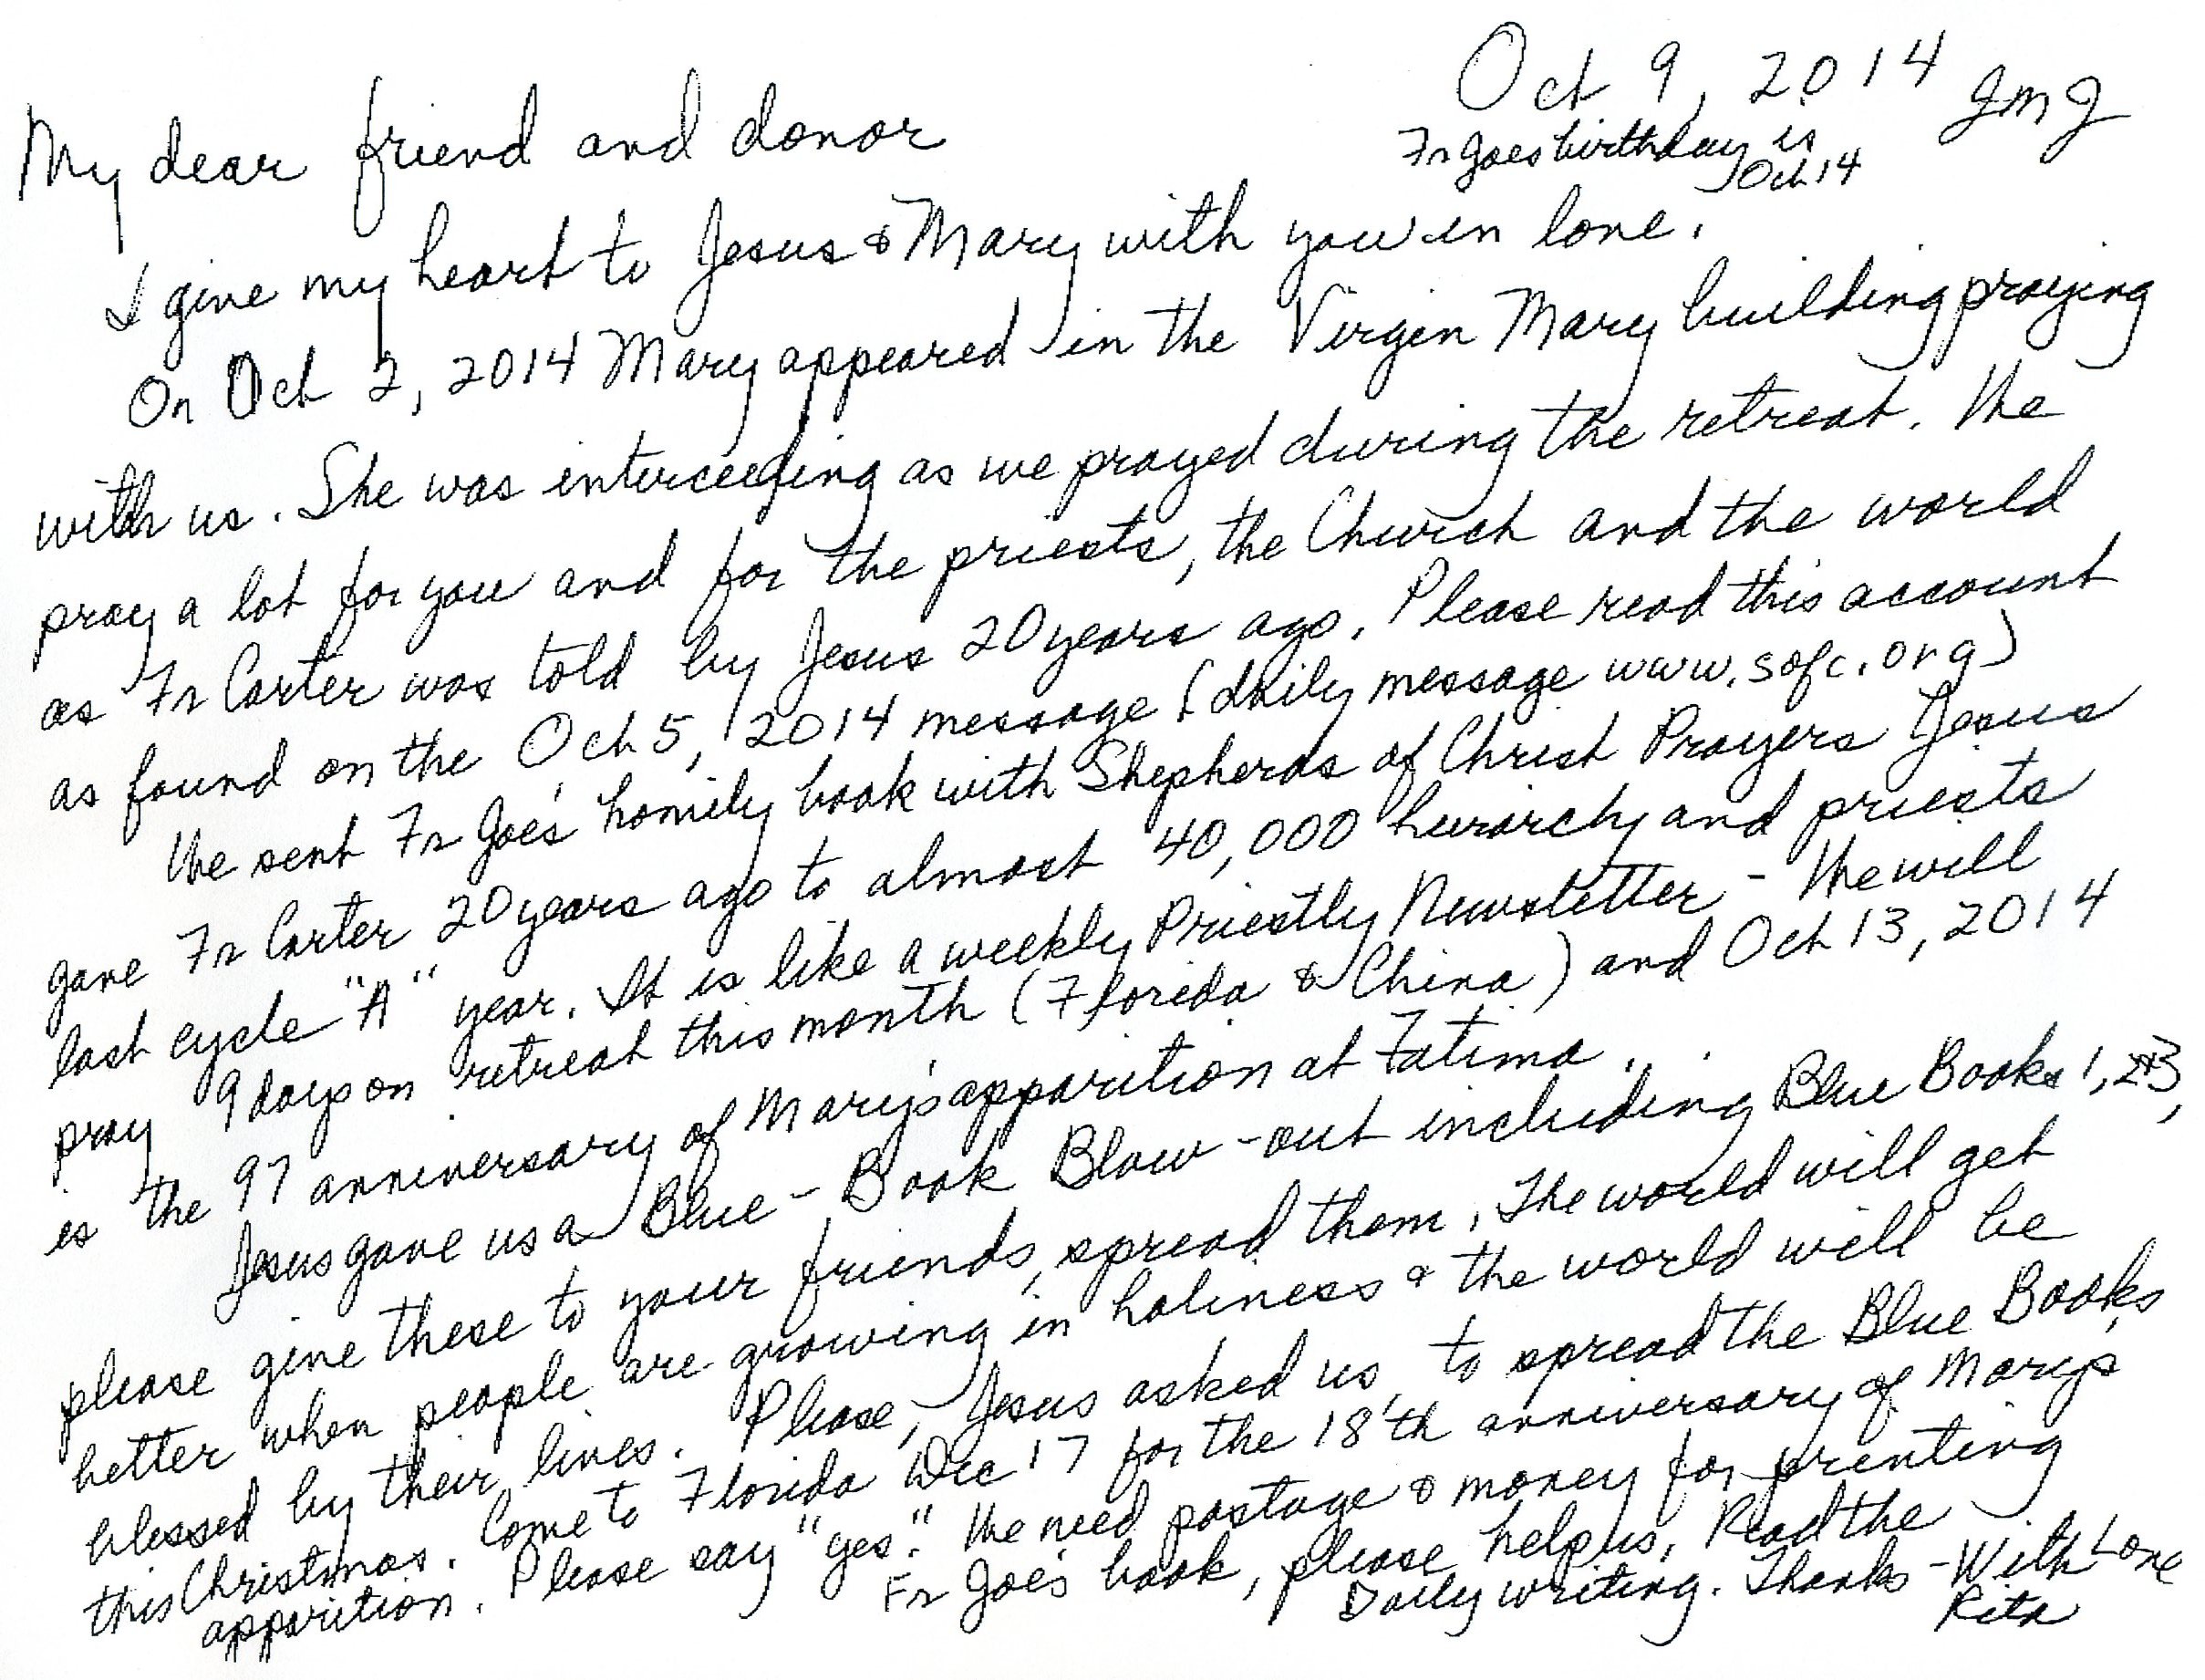 Oct 9, 2014 JMJ
Fr Joes birthday is
Oct 14
My dear friend and donor
I give my heart to Jesus & Mary with you in love.
On Oct 2, 2014 Mary appeared in the Virgin Mary building praying
with us. She was interceeding as we prayed during the retreat. We
pray a lot for you and for the priests, the Church and the world
as Fr Carter was told by Jesus 20 years ago. Please read this account
as found on the Oct 5, 2014 message (daily message www.sofc.org)
We sent Fr Joe's homily book with Shepherds of Christ Prayers Jesus
gave Fr Carter 20 years ago to almost 40,000 hierarchy and priests
last cycle "A" year. It is like a weekly Priestly Newsletter - We will
pray 9 days on retreat this month (Florida & China) and Oct 13, 2014
is the 97 anniversary of Mary's apparition at Fatima.
Jesus gave us a Blue-Book Blow-out including Blue Books 1, 2+3,
please give these to your friends, spread them. The world will get
better when people are growing in holiness & the world will be
blessed by their lives. Please, Jesus asked us, to spread the Blue Books,
this Christmas. Come to Florida Dec 17 for the 18'th anniversary of Mary's
apparition. Please say "yes". We need postage & money for printing
Fr Joe's book, please help us. Read the
Daily writing. Thanks - With Love
Rita